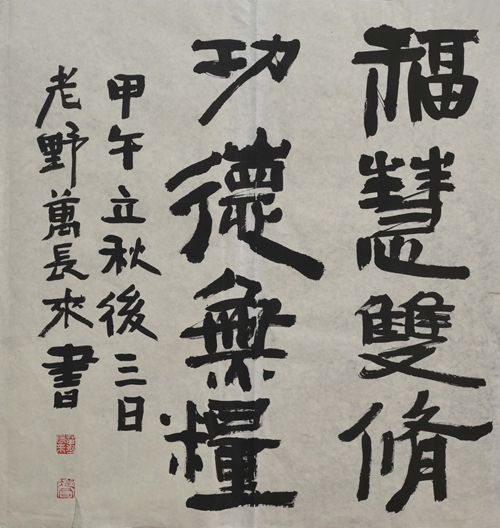 福慧雙脩
功德無糧
甲午立秋後三日
老野萬長來書